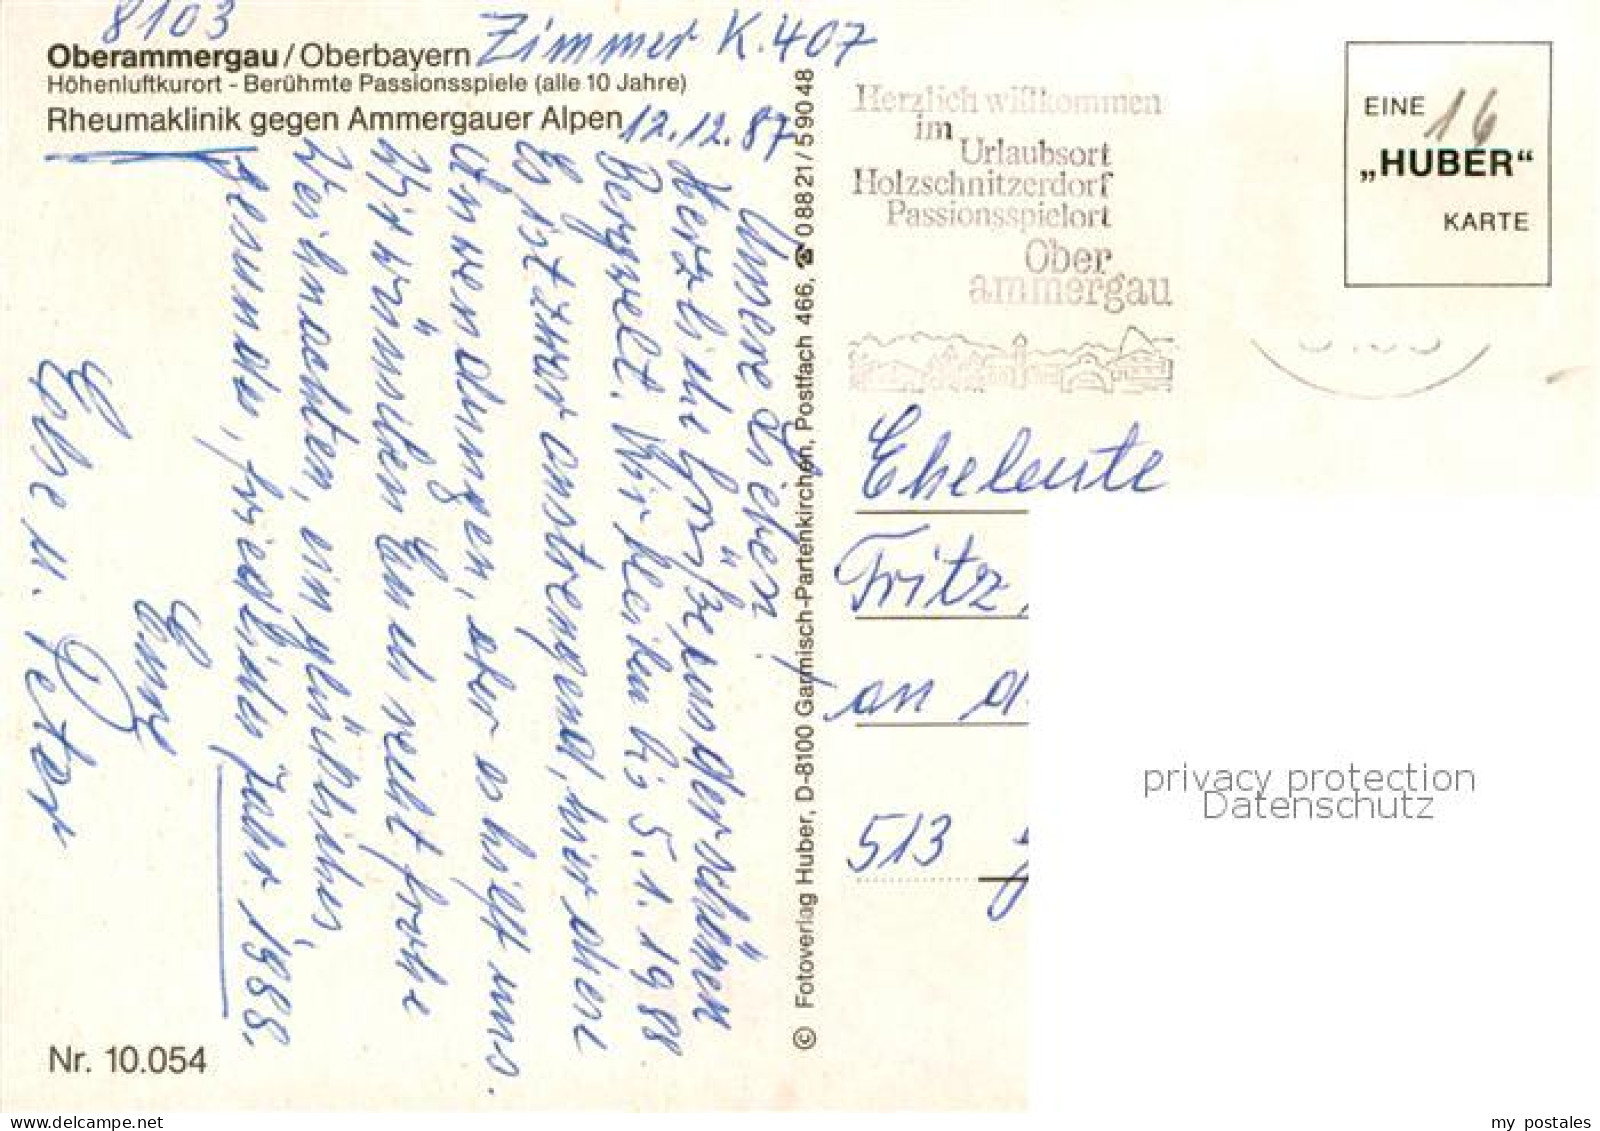 8103
Zimmer K. 407
Oberammergau / Oberbayern
Höhenluftkurort - Berühmte Passionsspiele (alle 10 Jahre)
Rheumaklinik gegen Ammergauer Alpen
12.12.87
Unsere Lieben!
Herzliche Grüße aus der schönen
Bergwelt. Wir bleiben bis 5.1.1988
Es ist zwar anstrengend, hier diese
Anwendungen, aber es hilft uns.
Wir wünschen Euch recht frohe
Weihnachten, ein glückliches,
gesundes, friedliches Jahr 1988.
Eure
Else u. Peter
Nr. 10.054
© Fotoverlag Huber, D-8100 Garmisch-Partenkirchen, Postfach 466, ☎ 0 88 21 / 5 90 48
Herzlich willkommen
im
Urlaubsort
Holzschnitzerdorf
Passionsspielort
Ober
ammergau
EINE
16
„HUBER“
KARTE
Eheleute
Fritz
an d
513
privacy protection
Datenschutz
my postales